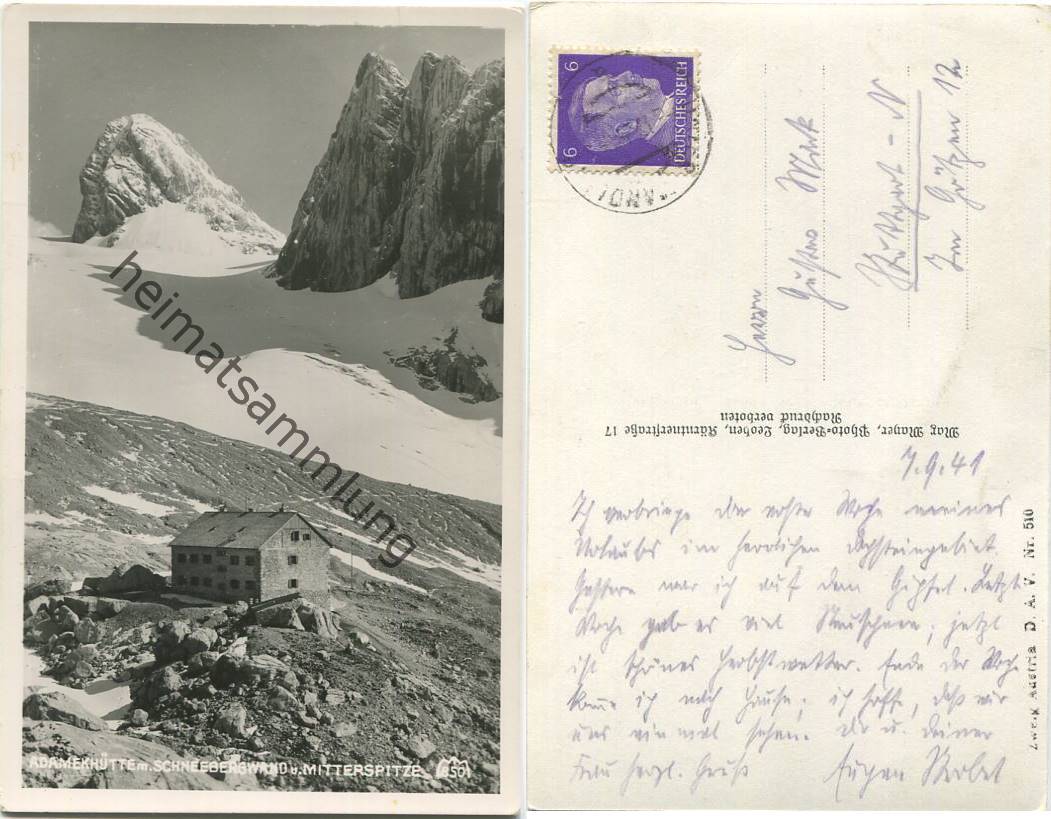 ADAMEKHÜTTE m. SCHNEEBERGWAND u. MITTERSPITZE. 8501
heimatsammlung
6 6
DEUTSCHES REICH
Herrn
Gustav
Stuttgart - N
Im Götzen 12
Max Mayer, Photo-Verlag, Leoben, Kärntnerstraße 17
Nachdruck verboten
7.9.41
Ich verbringe die erste Woche meines
Urlaubs im herrlichen Dachsteingebiet.
Gestern war ich auf dem Gipfel. Letzte
Woche gab es viel Neuschnee; jetzt
ist schönes Herbstwetter. Ende der Woche
komme ich nach Hause; ich hoffe, daß wir
uns einmal sehen. Dir u. Deiner
Frau herzl. Gruß Eugen
Zweig Austria D. A. V. Nr. 510